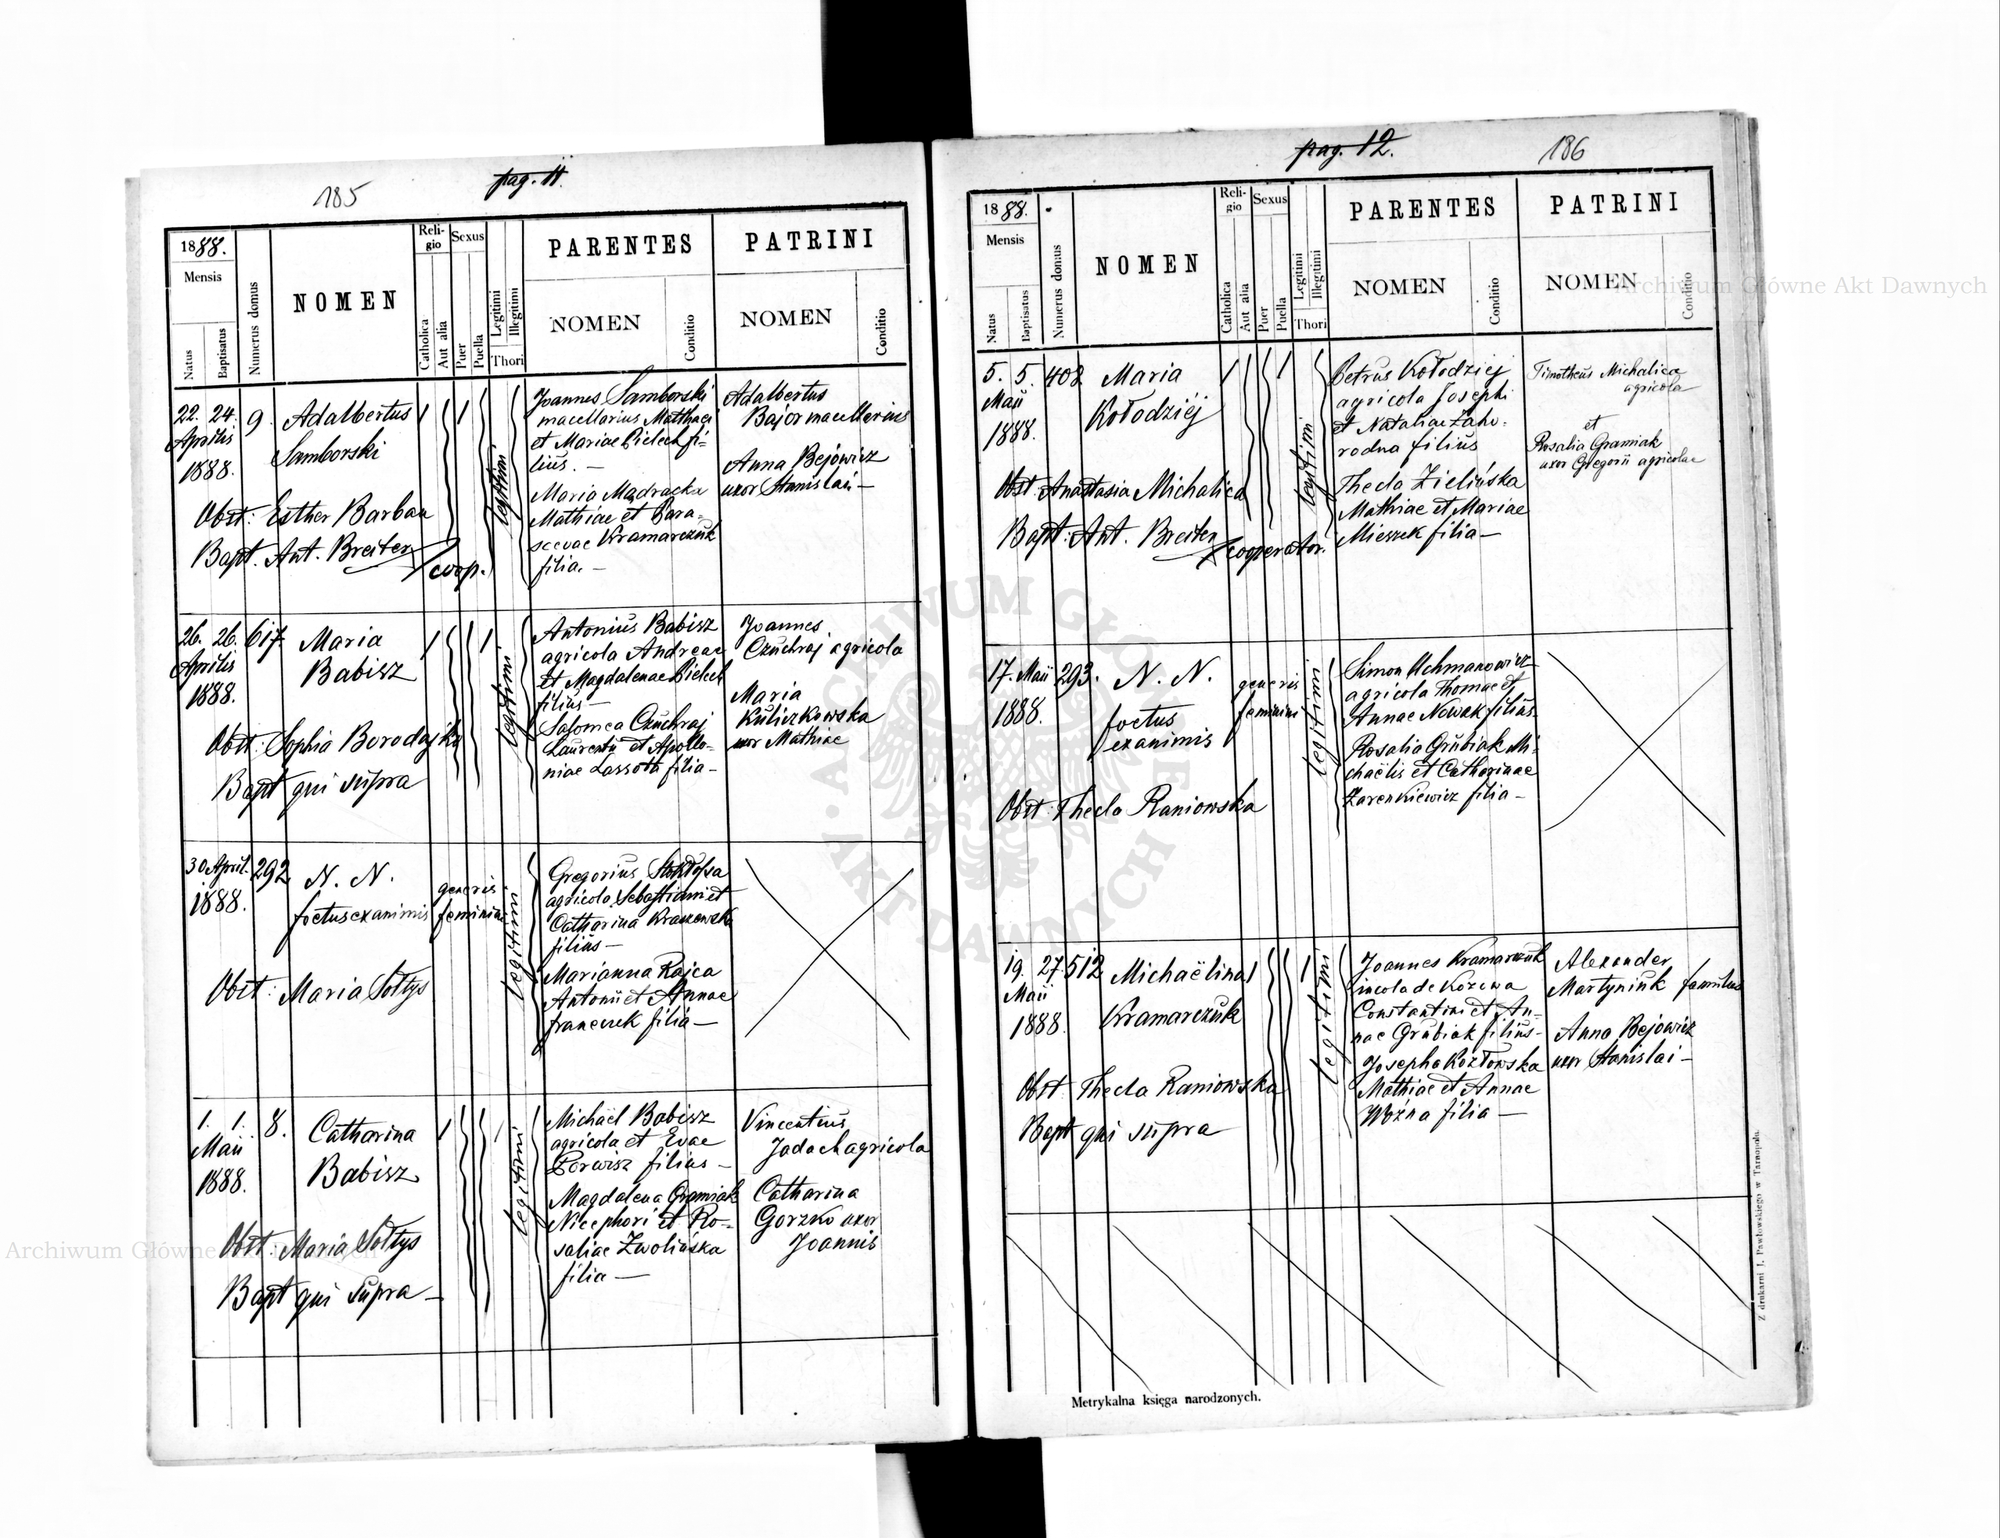 185
pag. 11.
1888.
Mensis
Natus
Baptisatus
Numerus domus
NOMEN
Reli-
gio
Catholica
Aut alia
Sexus
Puer
Puella
Legitimi
Illegitimi
Thori
PARENTES
NOMEN
Conditio
PATRINI
NOMEN
Conditio
22. 24. 9.
Aprilis
1888.
Adalbertus
Samborski
Obst: Esther Barban
Bapt. Ant. Breiter
coop.
legitimi
Joannes Samborski
macellarius Matthaei
et Mariae Bielech fi-
lius. —
Maria Mądracka
Mathiae et Para-
scevae Kramarczuk
filia. —
Adalbertus
Bajor macellarius
Anna Bejowicz
uxor Stanislai —
26. 26. 617.
Aprilis
1888.
Maria
Babisz
Obst: Sophia Borodajko
Bapt qui supra
legitimi
Antonius Babisz
agricola Andreae
et Magdalenae Bielech
filius —
Salomea Czuchraj
Laurentii et Apollo-
niae Lassota filia —
Joannes
Czuchraj agricola
Maria
Kuliczkowska
uxor Mathiae
30 April. 292
1888.
N. N.
foetus exanimis
generis
feminini
Obst: Maria Sołtys
legitimi
Gregorius Stokłosa
agricola Sebastiani et
Catharina Kraszewska
filius —
Marianna Rajca
Antonii et Annae
Franczek filia —
1. 1. 8.
Maii
1888.
Catharina
Babisz
Obst. Maria Sołtys
Bapt qui supra —
legitimi
Michaël Babisz
agricola et Evae
Porwisz filius —
Magdalena Gramiak
Nicephori et Ro-
saliae Zwolińska
filia —
Vincentius
Jadach agricola
Catharina
Gorzko uxor
Joannis
pag. 12.
186
1888.
Mensis
Natus
Baptisatus
Numerus domus
NOMEN
Reli-
gio
Catholica
Aut alia
Sexus
Puer
Puella
Legitimi
Illegitimi
Thori
PARENTES
NOMEN
Conditio
PATRINI
NOMEN
Conditio
5. 5. 408
Maii
1888.
Maria
Kołodziéj
Obst. Anastasia Michalica
Bapt. Ant. Breiter
cooperator.
legitimi
Petrus Kołodziej
agricola Josephi
et Nataliae Zaho-
rodna filius
Thecla Zielińska
Mathiae et Mariae
Mieszek filia —
Timotheus Michalica
agricola
et
Rosalia Gramiak
uxor Gregorii agricolae
17. Maii 293.
1888.
N. N.
foetus
exanimis
generis
feminini
Obst. Thecla Raniowska
legitimi
Simon Uchmanowicz
agricola Thomae et
Annae Nowak filius
Rosalia Grubiak Mi-
chaëlis et Catharinae
Zarenkiewicz filia —
19. 27. 512
Maii
1888.
Michaëlina
Kramarczuk
Obst Thecla Raniowska
Bapt qui supra
legitimi
Joannes Kramarczuk
incola de Korzowa
Constantini et An-
nae Grubiak filius —
Josepha Kozłowska
Mathiae et Annae
Woźna filia —
Alexander
Martyniuk famulus
Anna Bejowicz
uxor Stanislai —
Metrykalna księga narodzonych.
Z drukarni J. Pawłowskiego w Tarnopolu.
Archiwum Główne Akt Dawnych
Archiwum Główne
ARCHIWUM GŁÓWNE · AKT DAWNYCH ·